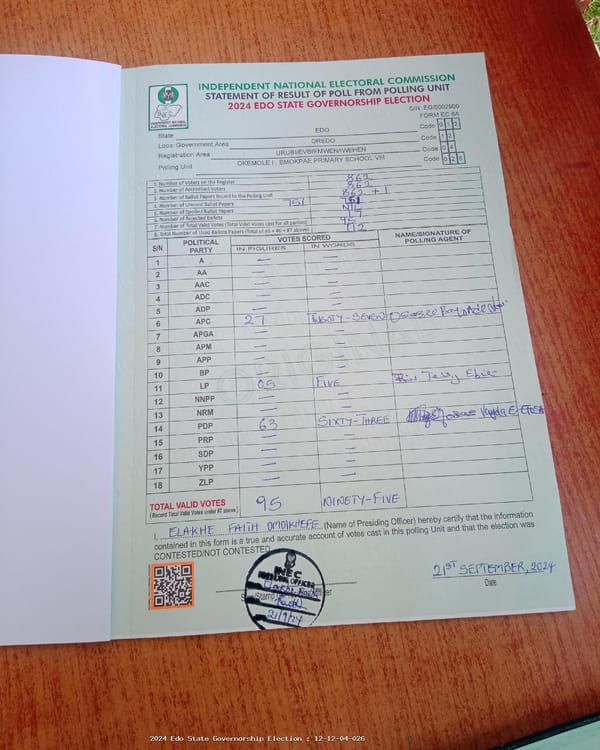 INDEPENDENT NATIONAL ELECTORAL COMMISSION
STATEMENT OF RESULT OF POLL FROM POLLING UNIT
2024 EDO STATE GOVERNORSHIP ELECTION
S/N: EG/S002900
FORM EC 8A
State EDO Code 0 1 2
Local Government Area OREDO Code 1 2
Registration Area URUBI/EVBIEMWEN/IWEHEN Code 0 4
Polling Unit OKEMOLE I . EMOKPAE PRIMARY SCHOOL VIII Code 0 2 6
1. Number of Voters on the Register 862
2. Number of Accredited Voters 862
3. Number of Ballot Papers Issued to the Polling Unit 862 + 1
4. Number of Unused Ballot Papers 751 751
5. Number of Spoiled Ballot Papers NIL
6. Number of Rejected Ballots 17
7. Number of Total Valid Votes (Total Valid Votes cast for all parties) 95
8. Total Number of Used Ballots Papers (Total of #5 + #6 + #7 above) 112
S/N POLITICAL PARTY VOTES SCORED NAME/SIGNATURE OF POLLING AGENT
IN FIGURES IN WORDS
1 A — —
2 AA — —
3 AAC — —
4 ADC — —
5 ADP — —
6 APC 27 TWENTY-SEVEN
7 APGA — —
8 APM — —
9 APP — —
10 BP — —
11 LP 05 FIVE
12 NNPP — —
13 NRM — —
14 PDP 63 SIXTY-THREE
15 PRP — —
16 SDP — —
17 YPP — —
18 ZLP — —
TOTAL VALID VOTES 95 NINETY-FIVE
(Record Total Valid Votes under #7 above)
I, ELAKHE FAITH OMOIKHEFE (Name of Presiding Officer) hereby certify that the information
contained in this form is a true and accurate account of votes cast in this polling Unit and that the election was
CONTESTED/NOT CONTESTED
INEC
21/9/24
21ST SEPTEMBER, 2024
Date
2024 Edo State Governorship Election : 12-12-04-026